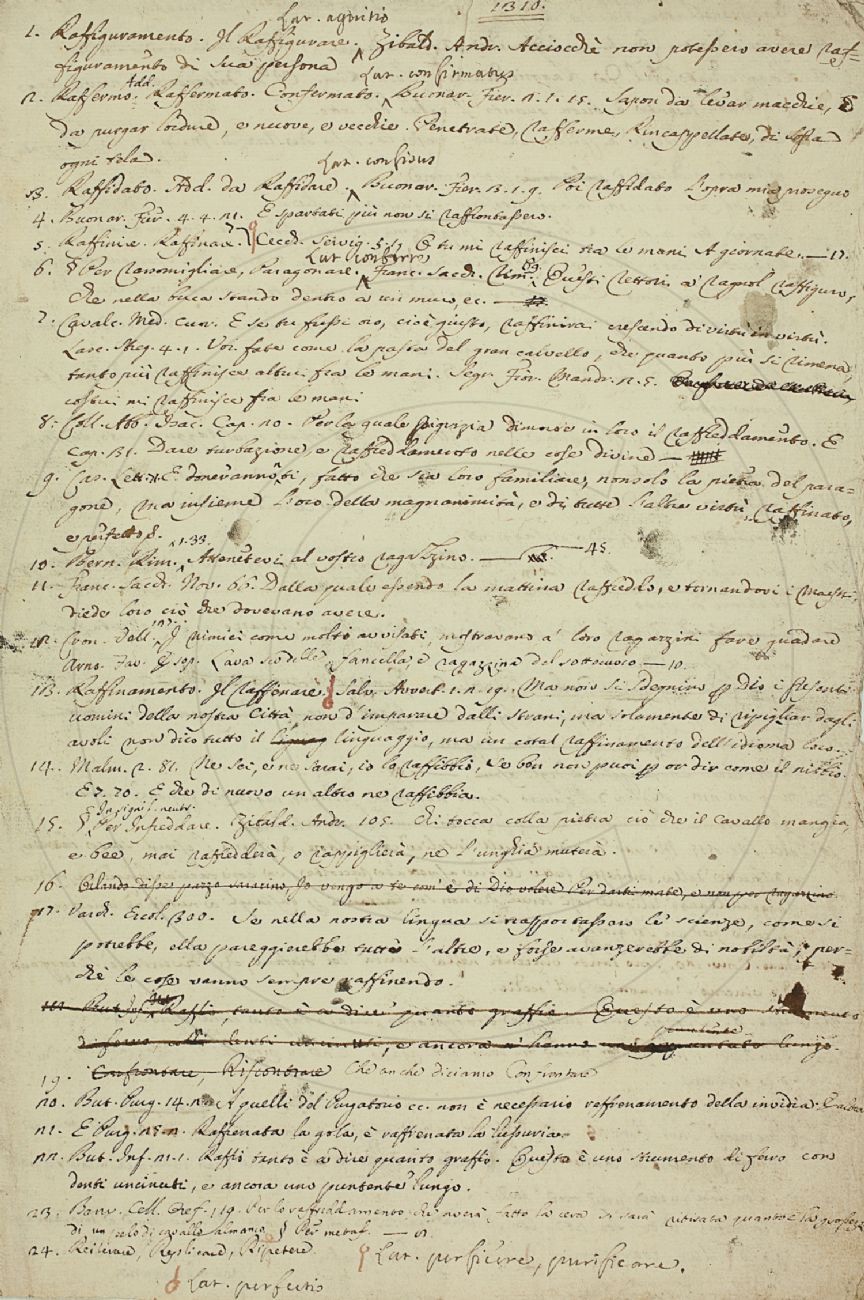 1310.
Lat. agnitio
1. Raffiguramento. Il Raffigurare. Zibald. Andr. Acciocchè non potessero avere raf=
figuramento di sua persona
Lat. confirmatus
2. Raffermo. Add. Raffermato. Confermato. Buonar. Fier. 2. 1. 15. Saponi da levar macchie, E
da purgar lordure, e nuove, e vecchie. Penetrate, rafferme, Rincappellate, di sopra
ogni tela.
Lat. confisus
3. Raffidato. Add. da Raffidare. Buonar. Fier. 3. 1. 9. Poi raffidato l'opra mia proseguo
4. Buonar. Fier. 4. 4. 21. E spartati più non si raffrontassero.
5. Raffinire. Raffinare. Cecch. Servig. 5. 1. E tu mi raffinisci tra le mani A giornate. — 17.
Lat. conferre
6. § Per rassomigliare, Paragonare. Franc. Sacch. rim. Questi lettori a' ragnol' raffiguro,
Che nella buca stando dentro a un muro, ec. —
7. Cavalc. Med. cuor. E se tu fussi oro, cioè giusto, raffinirai crescendo di virtù in virtù.
Lasc. Streg. 4. 1. Voi fate come la pasta del gran calvello, che quanto più si rimena,
tanto più raffinisce altrui fra le mani. Segr. Fior. Mandr. 2. 5.
costui mi raffinisce fra le mani
8. Coll. Abb. Isac. Cap. 20. Per la quale pigrizia dimora in loro il raffreddamento. E
Cap. 31. Dare turbazione, e raffreddamento nelle cose divine —
9. Cas. Lett. E' dover'anno, fatto che sia loro familiare, non solo la pietra del para=
gone, ma insieme l'oro della magnanimità, e di tutte l'altre virtù, raffinato,
e perfetto.
10. Bern. Rim. 1. 33. Attenetevi al vostro ragazzino. — 45.
11. Franc. Sacch. Nov. 66. Dalla quale essendo la mattina raffreddo, e tornandovi i Maestri,
diede loro ciò che dovevano avere.
12. Cron. Vell. I nimici come molto avvisati, mostravano a' loro ragazzini fare guadare
Arno. Fav. Esop. Lava scodelle, fancella, e ragazzina del sottocuoco — 10.
13. Raffinamento. Il raffinare. Salv. Avvert. 1. 2. 19. Ma non si sdegnino p Dio i presenti
uomini della nostra Città, non d'imparare dalli strani, ma solamente di ripigliar dagli
avoli non dico tutto il linguaggio, ma un cotal raffinamento dell'idioma loro.
14. Malm. 2. 81. Ne sei, e ne sarai, io lo raffibbio, Se ben non puoi p or dir come il nibbio.
E 7. 70. E che di nuovo un altro ne raffibbia.
§ In signif. neutr.
15. § Per Infreddare. Zibald. Andr. 105. Chi tocca colla pietra ciò che il Cavallo mangia,
e bee, mai raffredderà, o rappiglierà, nè l'unghia muterà.
16. Orlando disse pazzo saracino, Io vengo a te com'è di Dio volere Per darti morte, e non per ragazzino
17. Varch. Ercol. 300. Se nella nostra lingua si trasportassero le scienze, come si
potrebbe, ella pareggierebbe tutte l'altre, e forse avanzerebbe di nobiltà, per=
chè le cose vanno sempre raffinendo.
18. But. Inf. Raffio, tanto è a dire quanto graffio. Questo è uno strumento
di ferro con denti uncinuti, e ancora lungo.
19. Confrontare, Riscontrare Che anche diciamo Confrontare
20. But. Purg. 14. 2. A quelli del Purgatorio ec. non è necessario raffrenamento della invidia
21. E Purg. 25. 2. Raffrenata la gola, è raffrenata la lussuria.
22. But. Inf. 21. 1. Raffio tanto è a dire quanto graffio. Questo è uno strumento di ferro con
denti uncinuti, e ancora uno puntente lungo.
23. Benv. Cell. Oref. 19. Per lo raffreddamento che averà fatto la cera si sarà ritirata quanto è la grossezza
di un pelo di cavallo almanco § Per metaf.
24. Reiterare, Replicare, Ripetere.
Lat. perficere, purificare.
Lat. perfectio